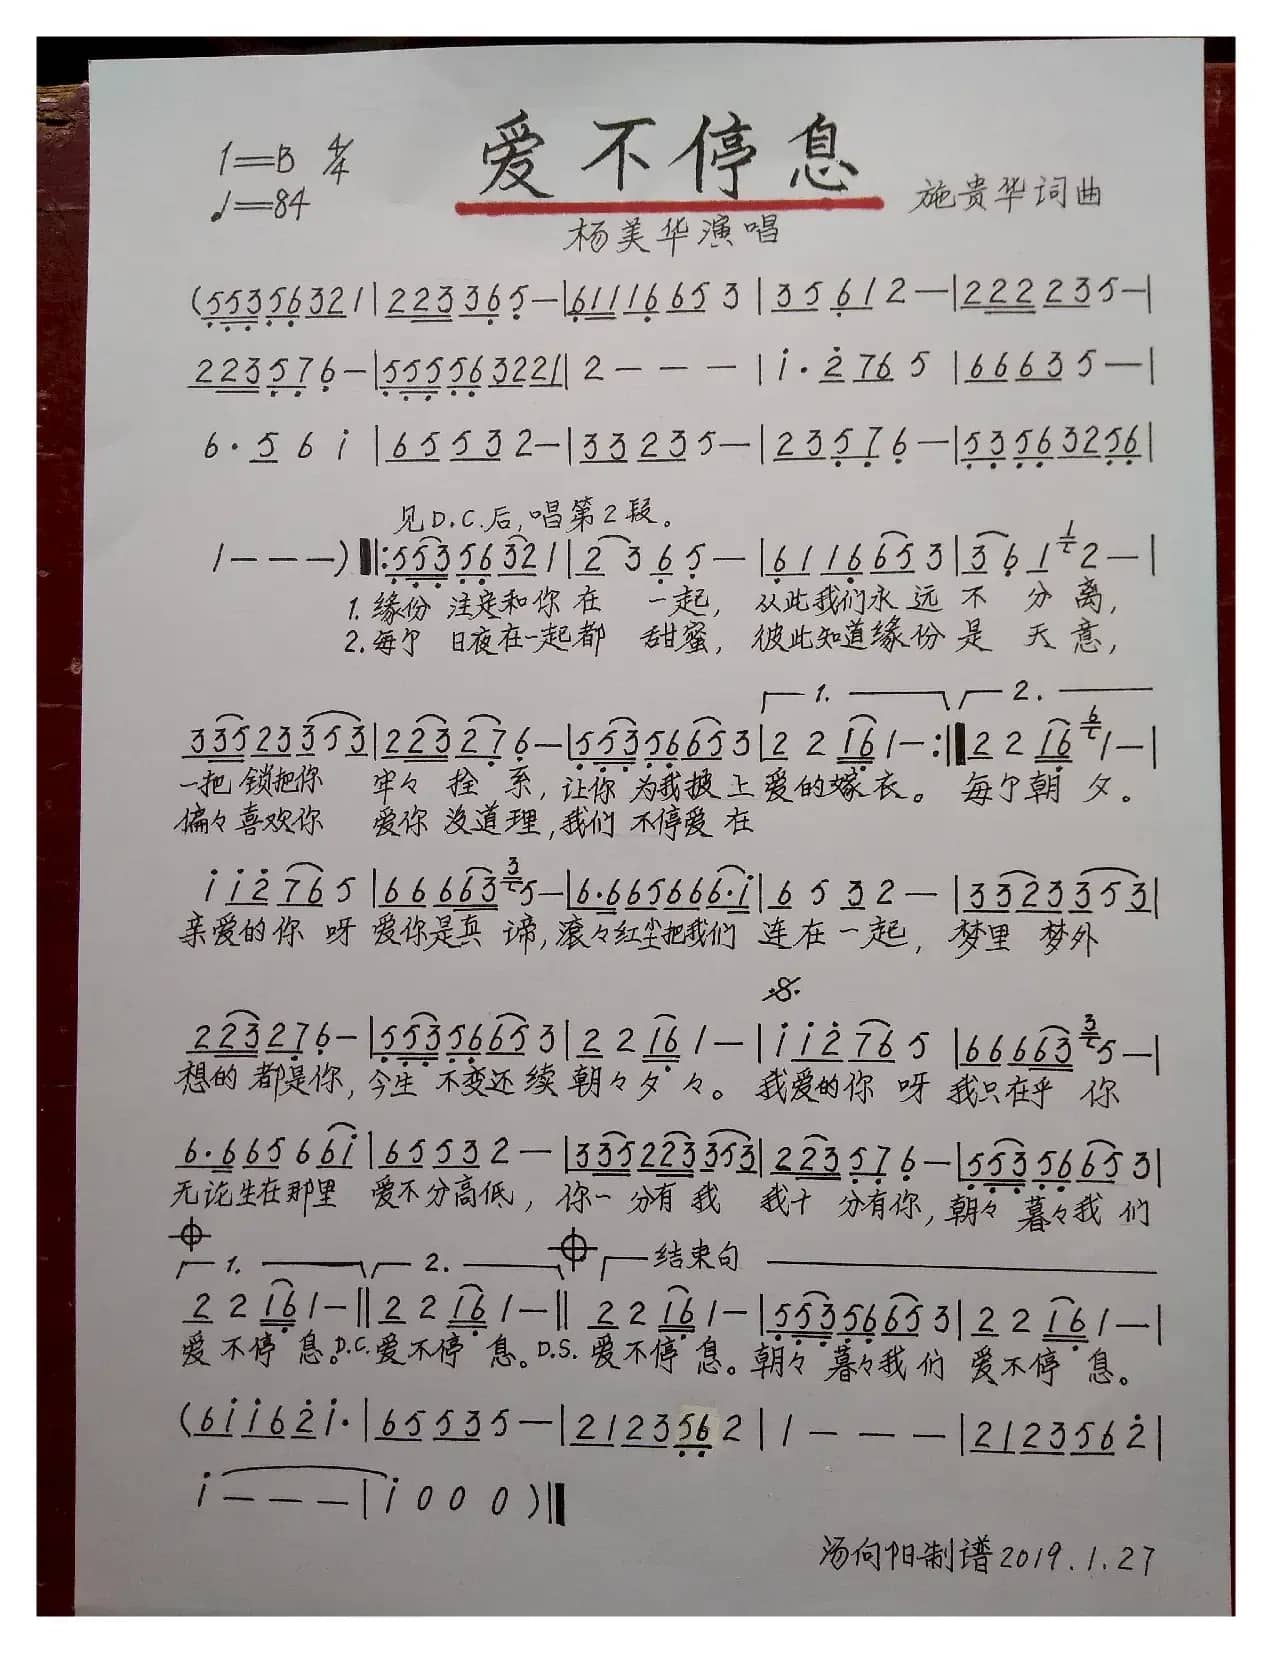 爱不停息
1=B 4/4
♩=84
施贵华词曲
杨美华演唱
(5535 6321|2233 65—|6111 6653|3561 2—|2222 235—|
2235 76—|5555 6322 1|2 — — —|i· 2 76 5|6663 5—|
6· 5 6 i|6553 2—|3323 5—|2357 6—|5356 3256|
见D.C.后,唱第2段。
1 — — —)‖:553 56 32 1|2 3 65—|611 6653|3 6 1 2—|
1.缘份 注定和你在 一起, 从此我们永远不 分离,
2.每个 日夜在一起都 甜蜜, 彼此知道缘份是 天意,
1. 2.
335 23 353|223 27 6—|553 56 65 3|2 2 16 1—:‖2 2 16 1—|
一把锁把你 牢々拴系,让你 为我披上爱的嫁衣。 每个朝夕。
偏々喜欢你 爱你没道理,我们不停爱在
i i2 76 5|66 663 5—|6·665666·i|65 32—|3323 353|
亲爱的你呀爱你是真谛,滚々红尘把我们 连在一起, 梦里梦外
223 27 6—|553 56 65 3|2 2 16 1—|i i2 76 5|66 663 5—|
想的都是你,今生 不变还续朝々夕々。 我爱的你呀我只在乎你
6·6656 6i|6553 2—|335 223 353|223 57 6—|553 56 65 3|
无论生在那里 爱不分高低, 你一分有我 我十分有你,朝々暮々我们
1. 2. 结束句
2 2 16 1—‖2 2 16 1—‖2 2 16 1—|553 56 65 3|2 2 16 1—|
爱不停息。D.C.爱不停息。D.S.爱不停息。朝々暮々我们爱不停息。
(6i i6 2i·|6553 5—|2123 56 2|1 — — —|2123 56 2|
i — — —|i 0 0 0)‖
汤向阳制谱2019.1.27